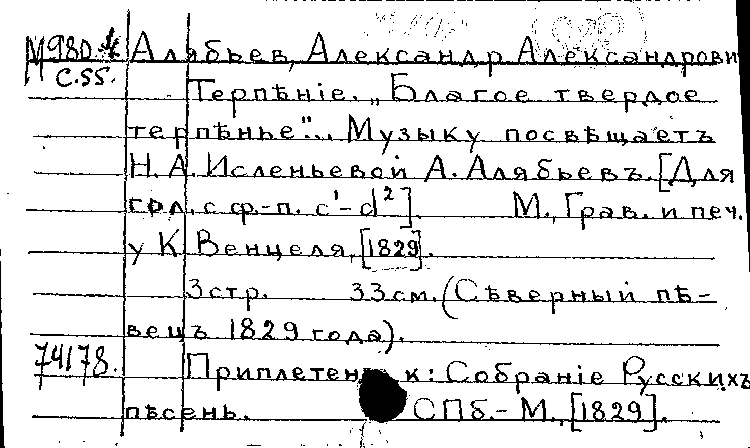 М980.4 Алябьев, Александр Александрови
С.55.
Терпѣніе. „Благое твердое
терпѣнье"... Музыку посвѣщаетъ
Н. А. Исленьевой А. Алябьевъ. [Для
гол. с ф-п. c¹-d²]. М., Грав. и печ.
у К Венцеля, [1829].
3стр. 33см. (Сѣверный пѣ-
вецъ 1829 года).
74178. Приплетен к: Собраніе Русскихъ
пѣсень. СПб.-М., [1829].